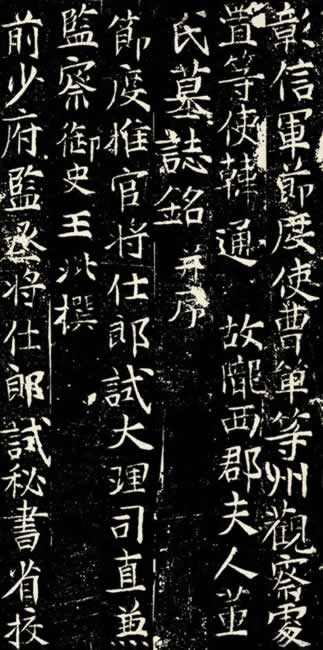 彰信軍節度使曹單等州觀察處
置等使韓通 故隴西郡夫人董
氏墓誌銘 并序
節度推官将仕郎試大理司直兼
監察御史王撰
前少府監丞将仕郎試秘書省校